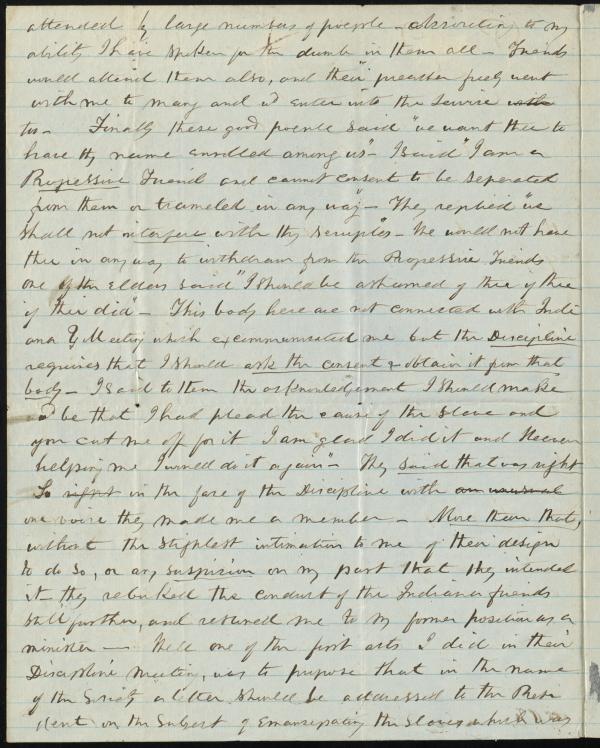 attended by large numbers of people - according to my
ability I have spoken for the dumb in them all - Friends
would attend them also, and their preacher freely went
with me to many and wd enter into the service with
too - Finally these good people said "we want thee to
have thy name enrolled among us" - I said "I am a
Progressive Friend and cannot consent to be separated
from them or trameled in any way" - They replied "we
shall not interfere with thy scruples - We would not have
thee in any way to withdraw from the Progressive Friends
one of the Elders said "I should be ashamed of thee if thee
if thee did" - This body here are not connected with Indi
ana Y Meeting which excommunicated me but the Discipline
requires that I should ask the consent & obtain it from that
body - I said to them the acknowledgement I should make
be that "I had plead the cause of the slave and
you cut me off for it I am glad I did it and Heaven
helping me I would do it again" - They said that was right
So right in the face of the Discipline with an unusual
one voice they made me a member - More than that,
without the slightest intimation to me of their design
to do so, or any suspicion on my part that they intended
it - they rebuked the conduct of the Indiana friends
still further, and returned me to my former position as a
minister - Well one of the first acts I did in their
Discipline meeting, was to propose that in the name
of the Society a letter should be addressed to the Presi
dent on the Subject of Emancipating the Slaves which was